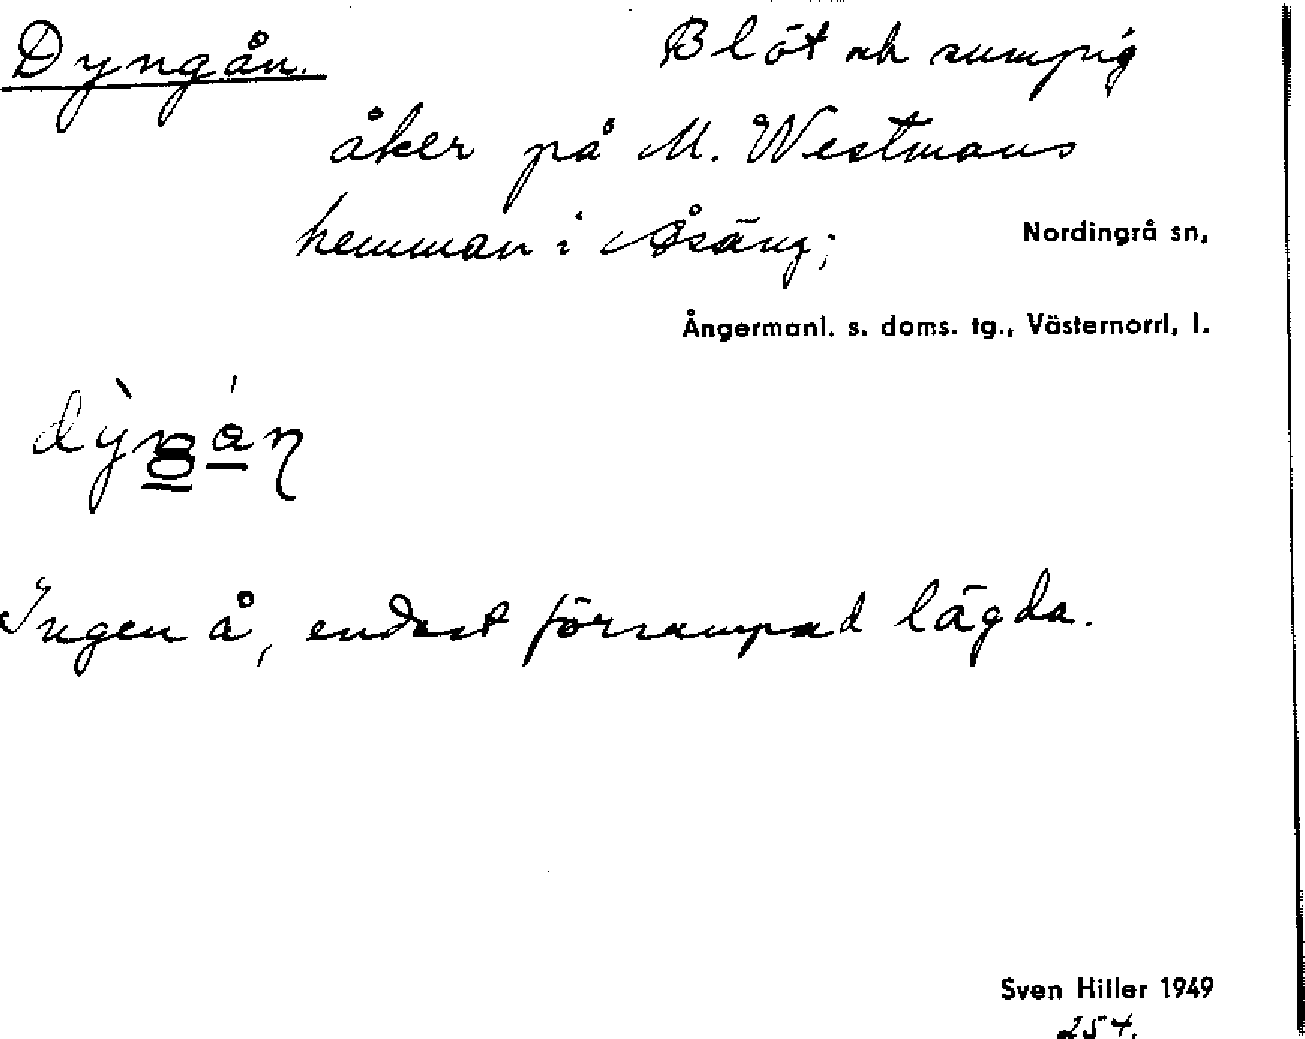 Dyngån. Blöt och sumpig
åker på M. Westmans
hemman i Åsäng;
Nordingrå sn,
Ångermanl. s. doms. tg., Västernorrl. l.
Ingen å, endast försumpad lägda.
Sven Hiller 1949
254.